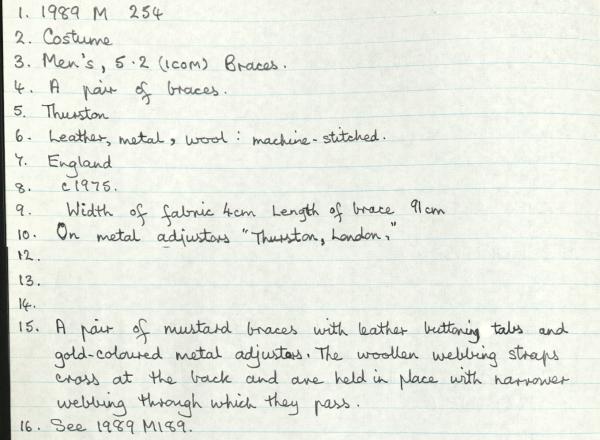 1. 1989 M 254
2. Costume
3. Men's, 5.2 (ICOM) Braces.
4. A pair of braces.
5. Thurston
6. Leather, metal, wool : machine-stitched.
7. England
8. c1975.
9. Width of fabric 4cm Length of brace 91cm
10. On metal adjustors "Thurston, London."
12.
13.
14.
15. A pair of mustard braces with leather buttoning tabs and
gold-coloured metal adjustors. The woollen webbing straps
cross at the back and are held in place with narrower
webbing through which they pass.
16. See 1989 M189.